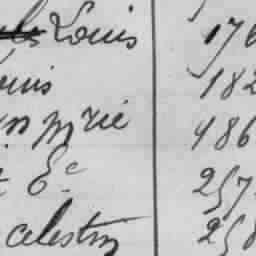 Louis 176
ouis 182
Mrie 486
Ec 257
celestin 258